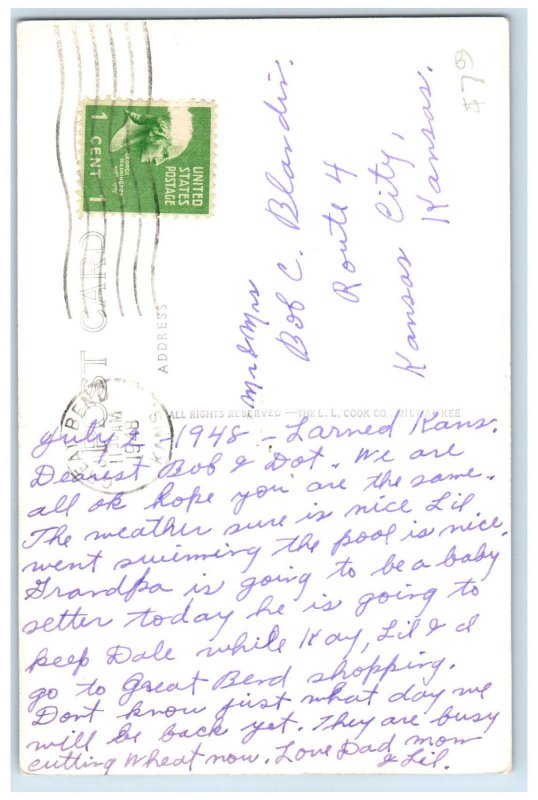 $7.09
1 CENT 1
GEORGE
WASHINGTON
UNITED
STATES
POSTAGE
POST CARD
ADDRESS
Mr & Mrs
Bob C. Blardin.
Route 4
Kansas City,
Kansas.
GREAT BEND
11 30 AM
1948
KANS
ALL RIGHTS RESERVED — THE L. L. COOK CO., MILWAUKEE
July 2 - 1948 - Larned Kans.
Dearest Bob & Dot. We are
all ok hope you are the same.
The weather sure is nice Lil
went swimming the pool is nice.
Grandpa is going to be a baby
setter today he is going to
keep Dale while Kay, Lil & I
go to Great Bend shopping.
Dont know just what day we
will be back yet. They are busy
cutting Wheat now. Love Dad mom
& Lil.